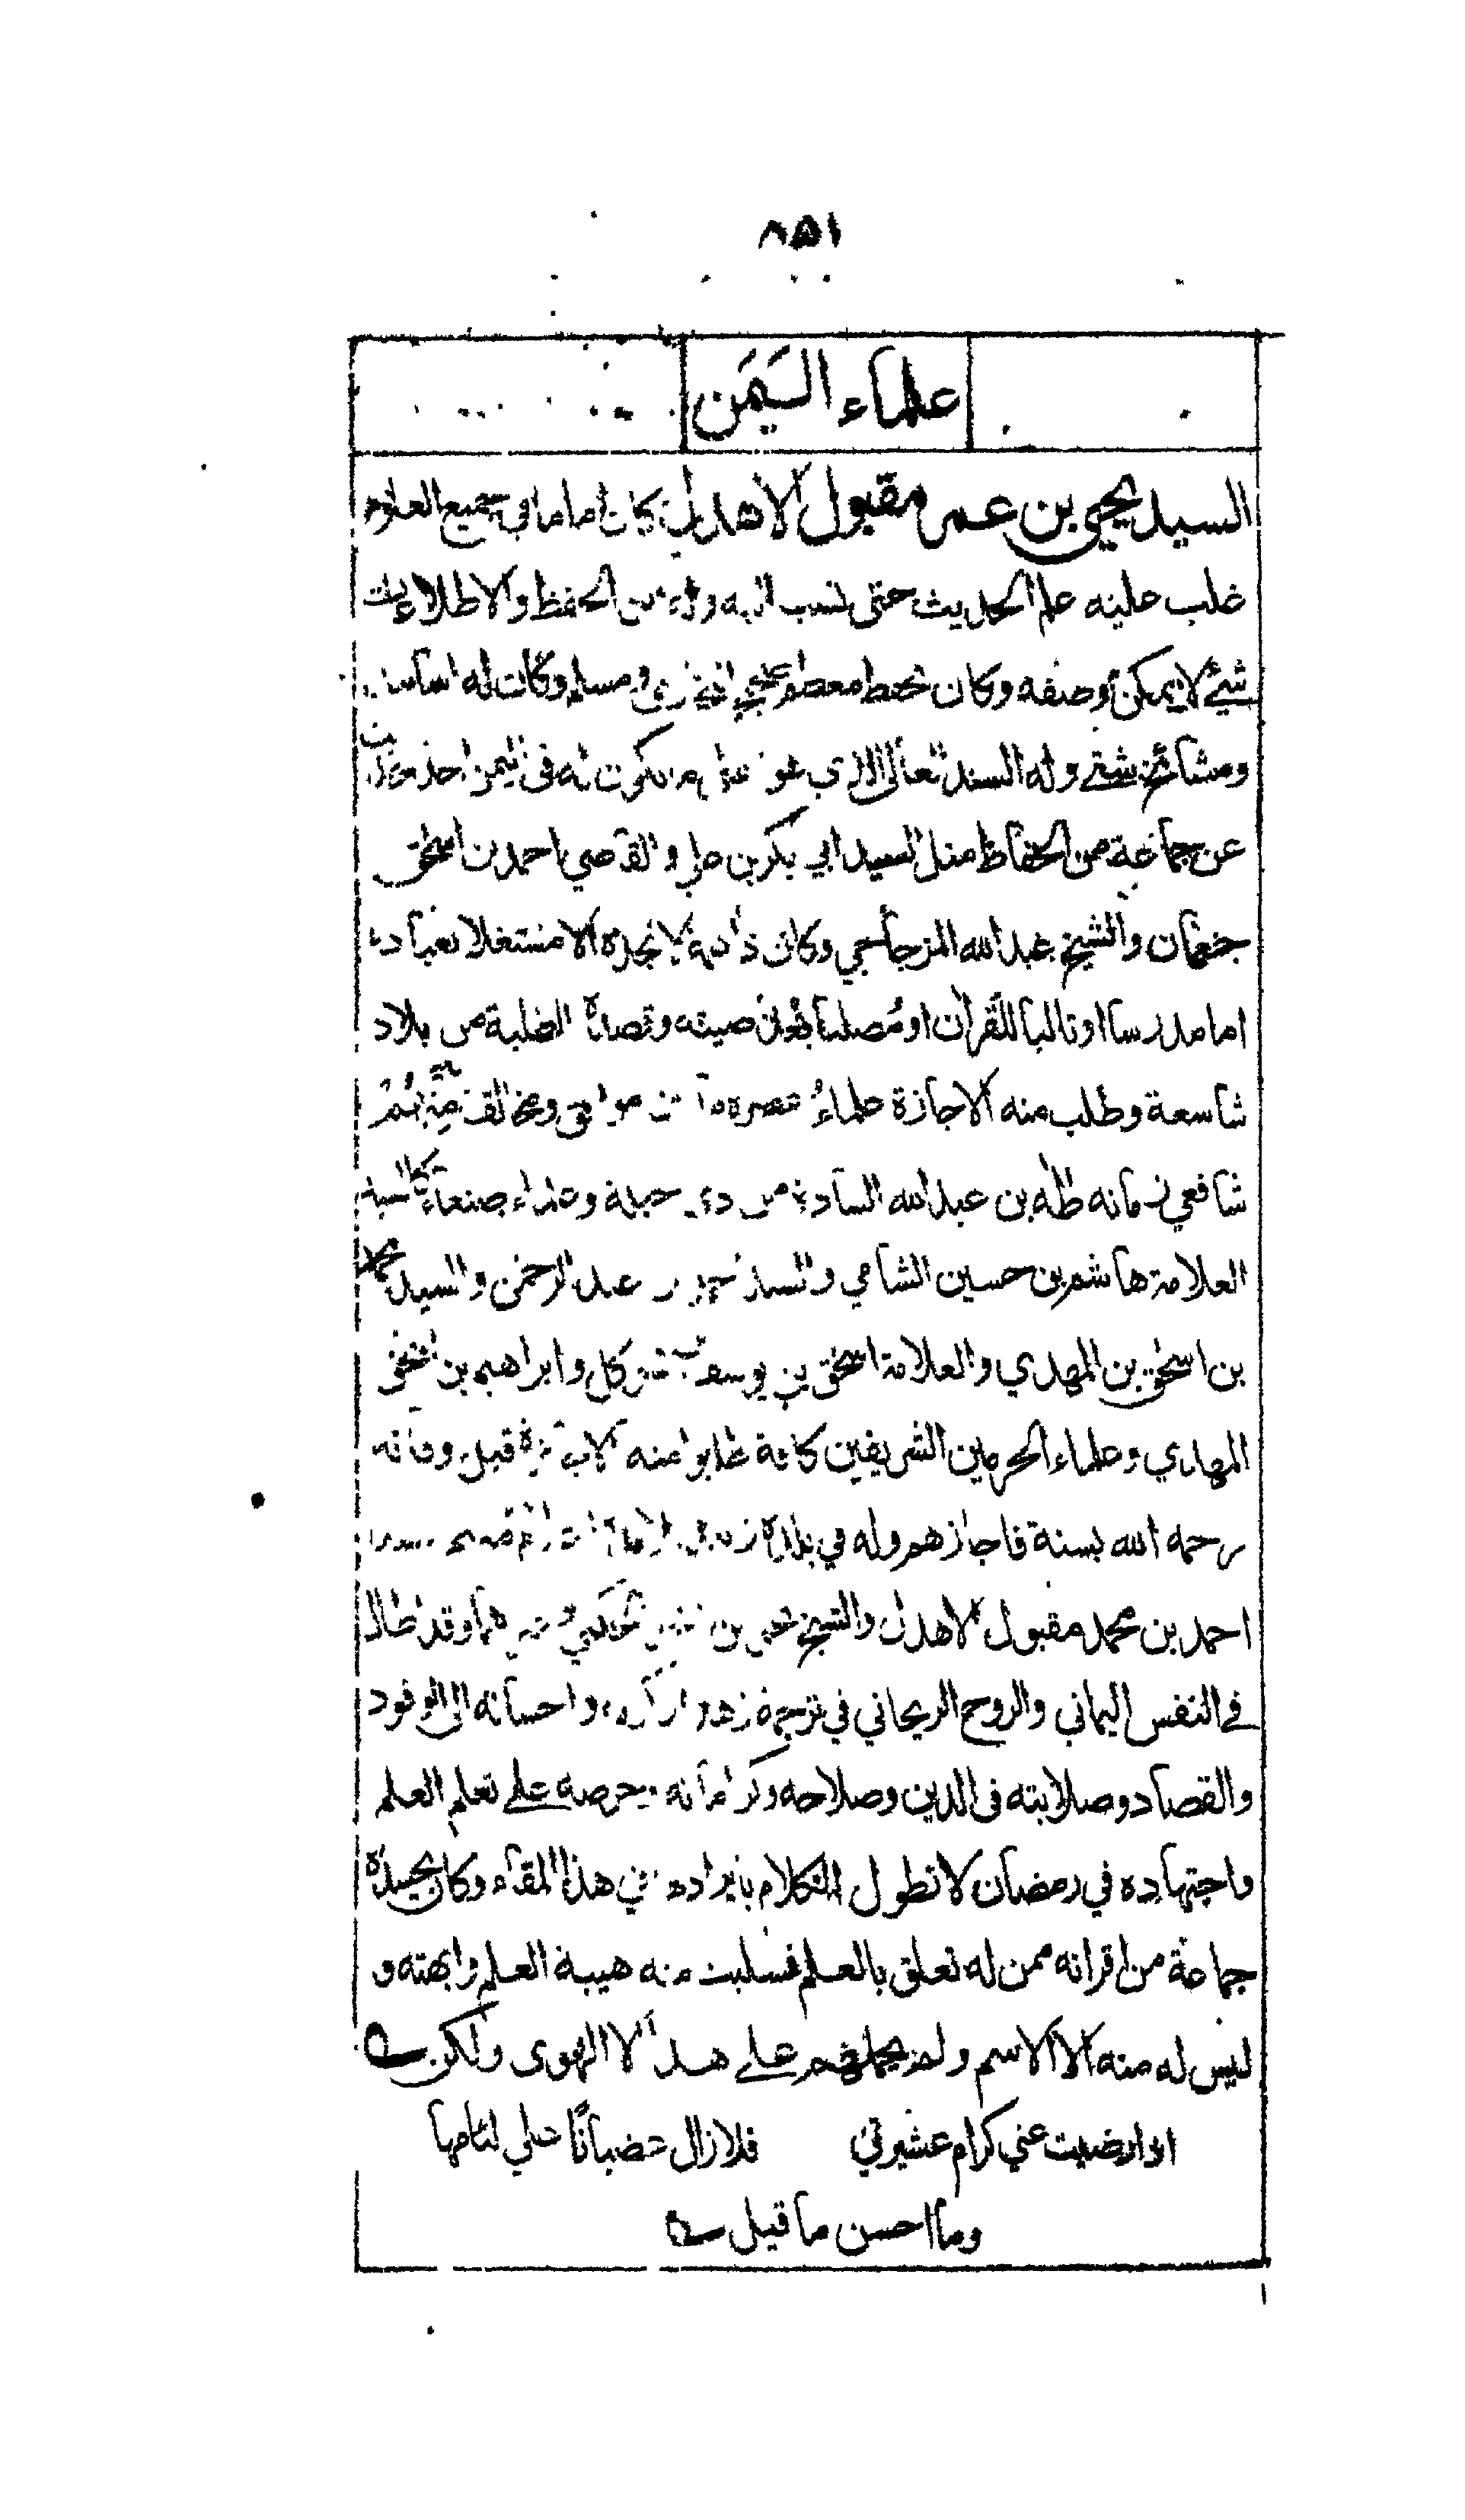 ٨٥١
علماء اليمن
السيد يحيى بن عمر مقبول الاهدل كان اماما في جميع العلوم
غلب عليه علم الحديث حتى نسب اليه وله من الحفظ والاطلاع
شيئ لا يمكن وصفه وكان يحفظ معظم صحيحي البخاري ومسلم وكان له
ومشائخ شتى وله السند العالي الذي في اليمن اخذ
عن جماعة من الحفاظ مثل السيد ابي بكر بن علي والقاضي احمد بن اسحٰق
جغمان والشيخ عبد الله المزجاجي وكان لا تجده الا مشتغلا بعبادة
اما مدرسا او تاليا للقرآن او مصليا صيته وقصده الطلبة من بلاد
شاسعة وطلب منه الاجازة علماء عصره من موافق ومخالف منهم
شافعي زمانه طه بن عبد الله السادة من ذي جبلة وعلماء صنعاء كالسيد
العلامة هاشم بن حسين الشامي والسيد عبد الرحمٰن والسيد محمد
بن اسحٰق بن المهدي والعلامة اسحٰق بن يوسف المتوكل وابراهيم بن اسحٰق
المهدي وعلماء الحرمين الشريفين كافة طلبوا منه الاجازة قبل وفاته
رحمه الله بسنة فاجازهم وله في بلده
احمد بن محمد مقبول الاهدل والشيخ بن وقد اطال
في النفس اليماني والروح الريحاني في ترجمة زهده واحسانه الى الوفود
والقصاد وصلابته في الدين وصلاحه وكراماته وحرصه على تعلم العلم
واجتهاده في رمضان لا نطول الكلام بايراده في هذا المقام وكان يحسده
جماعة من اقرانه ممن له تعلق بالعلم فسلبت منه هيبة العلم وابهته و
ليس له منه الا الاسم ولم يحملهم على هذا الا الهوى ولكن
اذا رضيت عني كرام عشيرتي فلا زال غضبانًا علي لئامها
وما احسن ما قيل